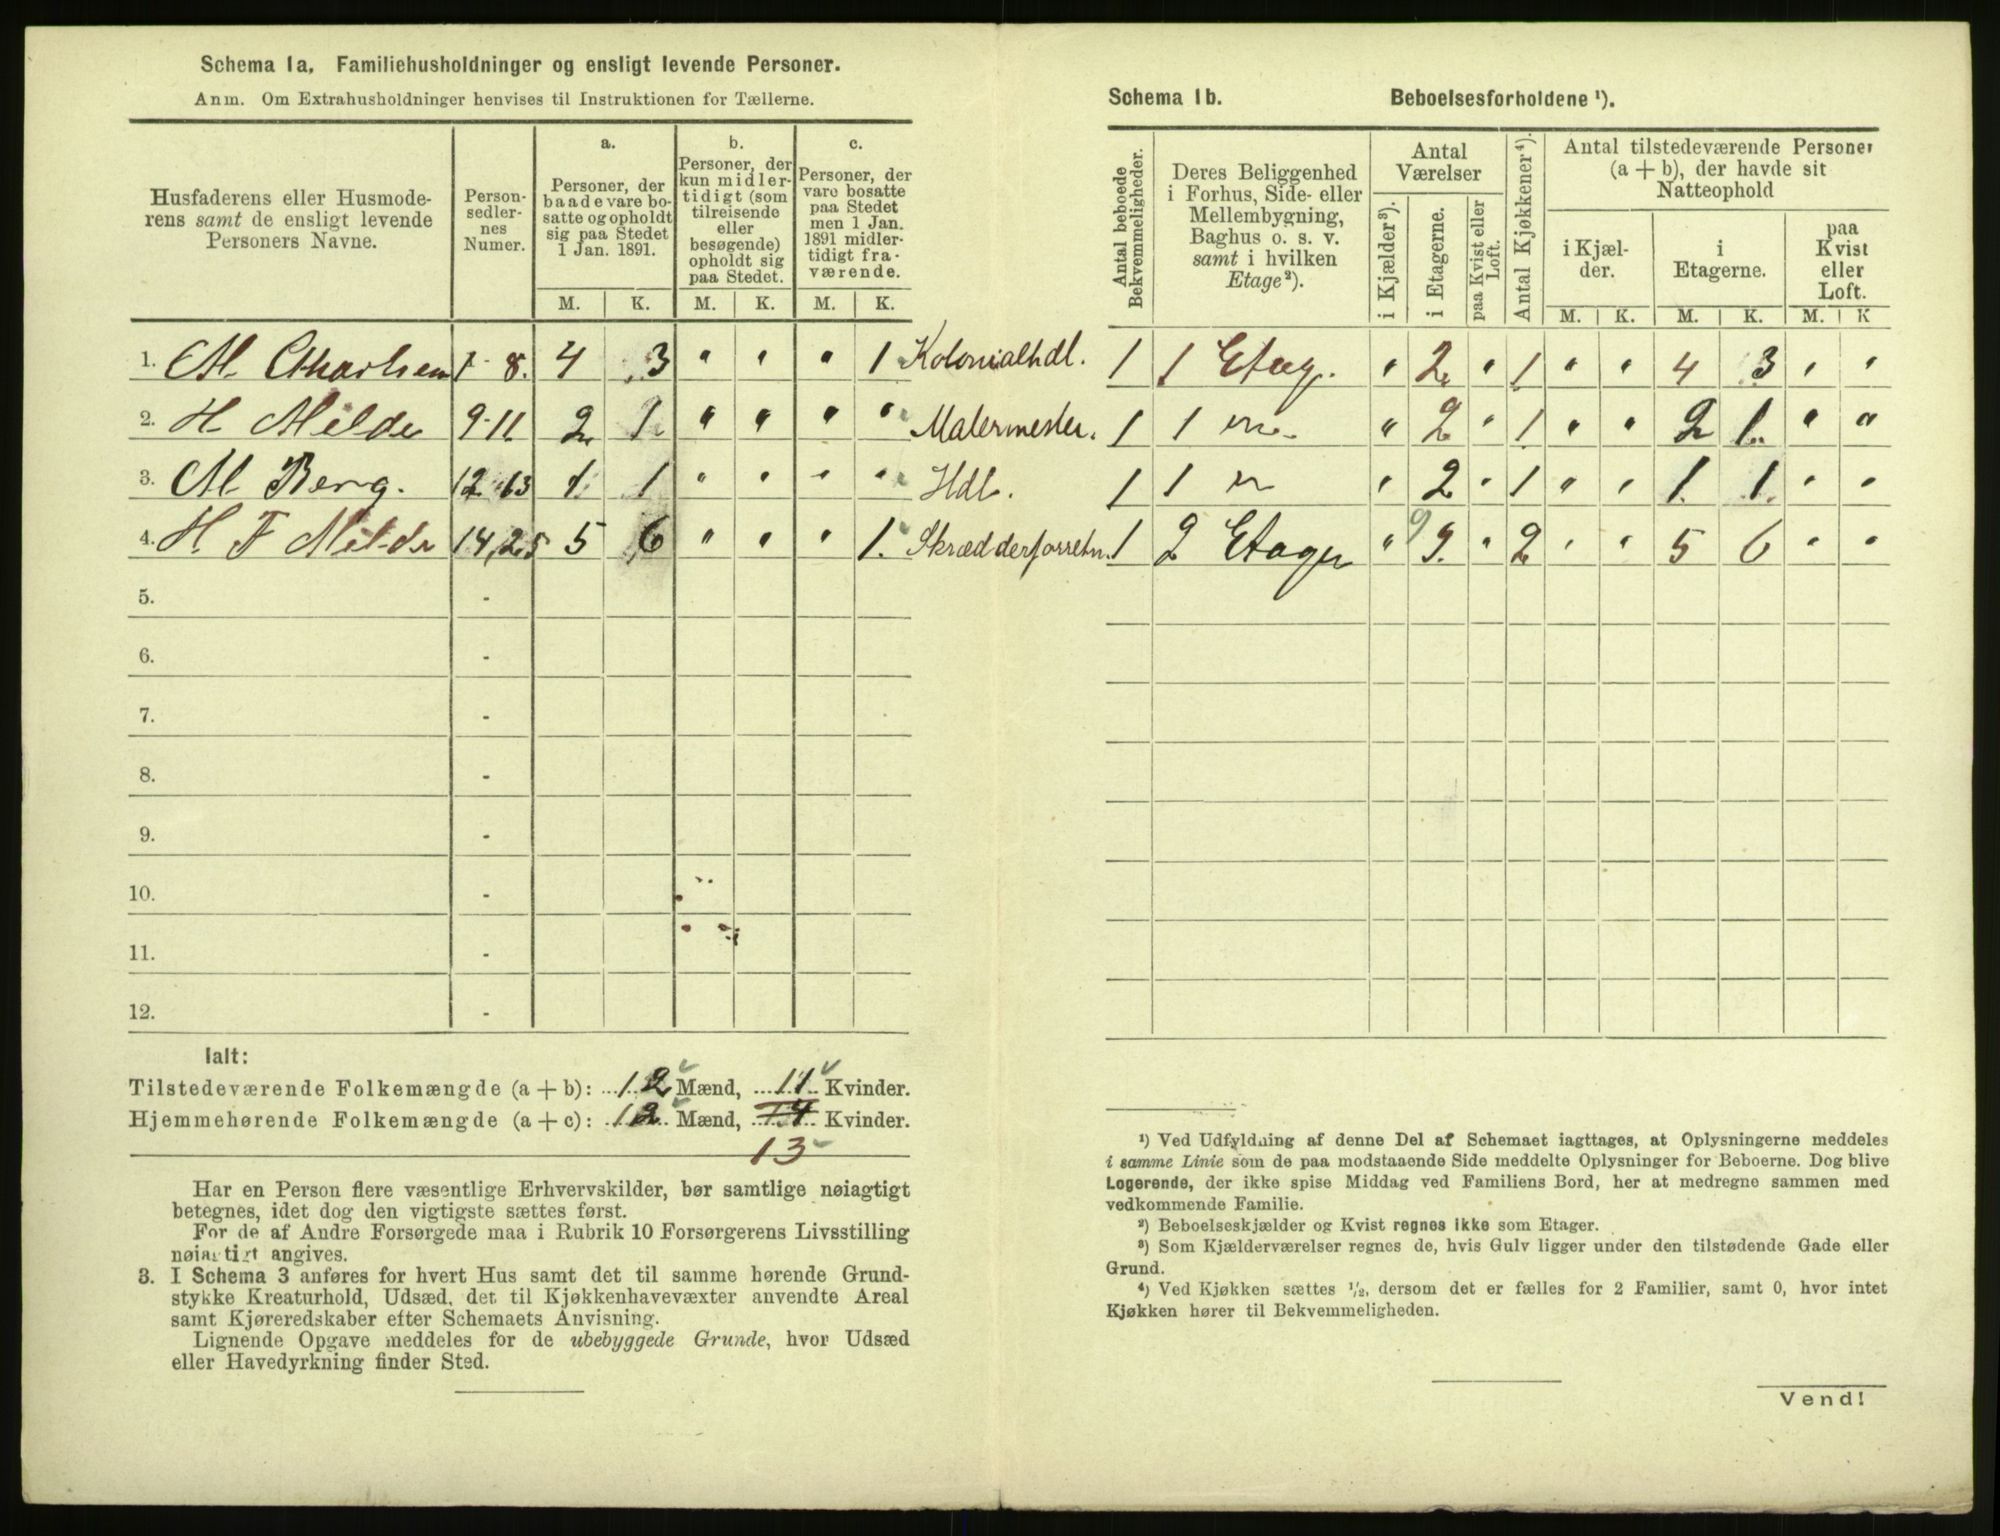 Schema 1a. Familiehusholdninger og ensligt levende Personer.
Anm. Om Extrahusholdninger henvises til Instruktionen for Tællerne.
Husfaderens eller Husmode-
rens samt de ensligt levende
Personers Navne.
Person-
sedler-
nes
Numer.
a.
Personer, der
baade vare bo-
satte og opholdt
sig paa Stedet
1 Jan. 1891.
b.
Personer, der
kun midler-
tidigt (som
tilreisende
eller
besøgende)
opholdt sig
paa Stedet.
c.
Personer, der
vare bosatte
paa Stedet
men 1 Jan.
1891 midler-
tidigt fra-
værende.
M. K. M. K. M. K.
1. M. Charlsen 1-8. 4 3 " " " 1 Kolonialhdl.
2. H Milde 9-11 2 1 " " " " Malermester.
3. M Berg. 12-13 1 1 " " " " Hdl.
4. H F Milde 14,25 5 6 " " " 1. Skrædderforretn.
5. -
6. -
7. -
8. -
9. -
10. -
11. -
12. -
Ialt:
Tilstedeværende Folkemængde (a + b): 12 Mænd, 11 Kvinder.
Hjemmehørende Folkemængde (a + c): 12 Mænd, 14 Kvinder.
13
Har en Person flere væsentlige Erhvervskilder, bør samtlige nøiagtigt
betegnes, idet dog den vigtigste sættes først.
For de af Andre Forsørgede maa i Rubrik 10 Forsørgerens Livsstilling
nøiagtigt angives.
3. I Schema 3 anføres for hvert Hus samt det til samme hørende Grund-
stykke Kreaturhold, Udsæd, det til Kjøkkenhavevæxter anvendte Areal
samt Kjøreredskaber efter Schemaets Anvisning.
Lignende Opgave meddeles for de ubebyggede Grunde, hvor Udsæd
eller Havedyrkning finder Sted.
Schema 1b. Beboelsesforholdene ¹).
Antal beboede
Bekvemmeligheder.
Deres Beliggenhed
i Forhus, Side- eller
Mellembygning,
Baghus o. s. v.
samt i hvilken
Etage²).
Antal
Værelser
i Kjælder³).
i Etagerne.
paa Kvist eller
Loft.
Antal Kjøkkener⁴).
Antal tilstedeværende Personer
(a + b), der havde sit
Natteophold
i Kjæl-
der.
i
Etagerne.
paa
Kvist
eller
Loft.
M. K. M. K. M. K
1 1 Etag. " 2 " 1 " " 4 3 " "
1 1 " " 2 " 1 " " 2 1. " "
1 1 " " 2 " 1 " " 1. 1. " "
1 2 Etager " 9 9. " 2 " " 5 6 " "
¹) Ved Udfyldning af denne Del af Schemaet iagttages, at Oplysningerne meddeles
i samme Linie som de paa modstaaende Side meddelte Oplysninger for Beboerne. Dog blive
Logerende, der ikke spise Middag ved Familiens Bord, her at medregne sammen med
vedkommende Familie.
²) Beboelseskjælder og Kvist regnes ikke som Etager.
³) Som Kjælderværelser regnes de, hvis Gulv ligger under den tilstødende Gade eller
Grund.
⁴) Ved Kjøkken sættes ¹/₂, dersom det er fælles for 2 Familier, samt 0, hvor intet
Kjøkken hører til Bekvemmeligheden.
Vend!